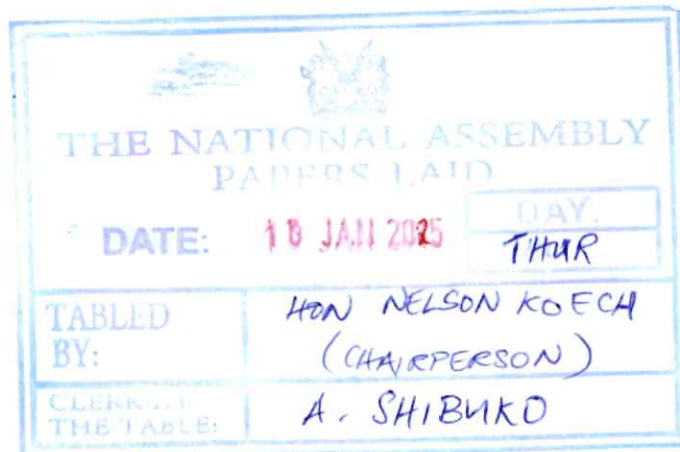 THE NATIONAL ASSEMBLY
PAPERS LAID
DATE: 16 JAN 2025
DAY.
THUR
TABLED BY:
HON NELSON KOECH
(CHAIRPERSON)
CLERK AT
THE TABLE:
A. SHIBUKO